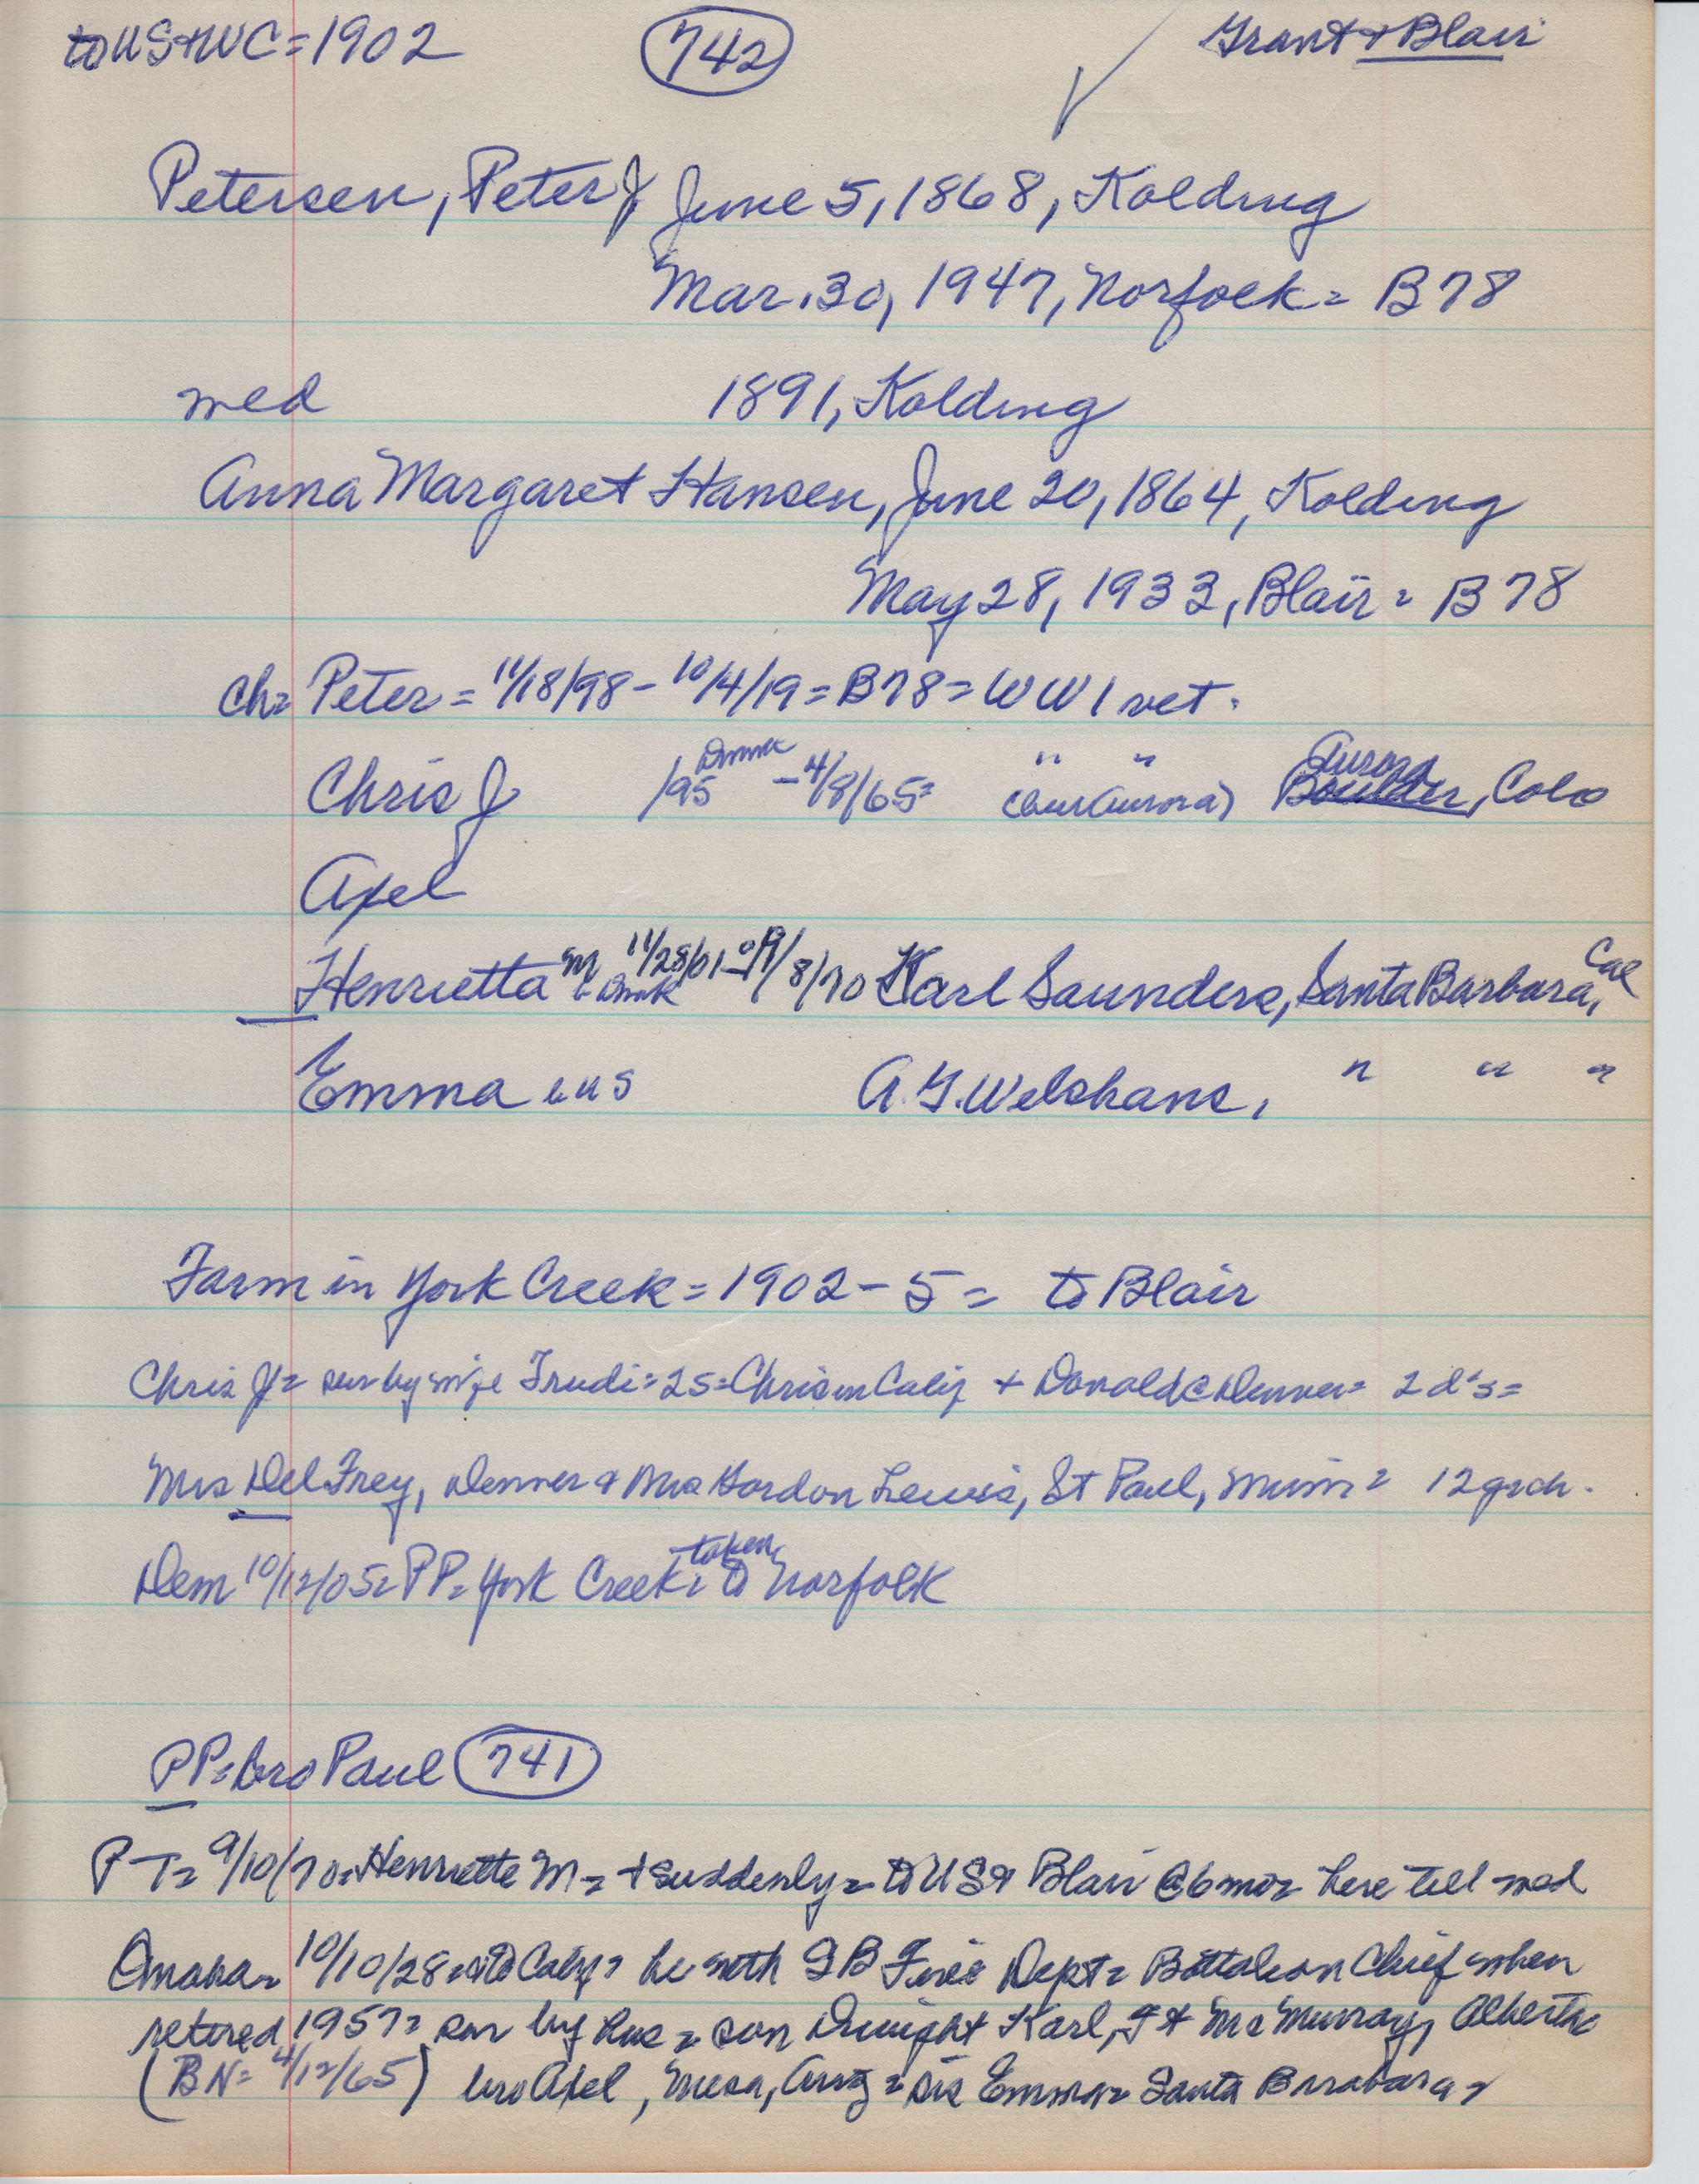 to US + WC = 1902 742 Grant + Blair
Petersen, Peter J June 5, 1868, Kolding
Mar. 30, 1947, Norfolk = B78
med 1891, Kolding
Anna Margaret Hansen, June 20, 1864, Kolding
May 28, 1933, Blair = B78
ch = Peter = 11/18/98 - 10/4/19 = B78 = WW1 vet.
Chris J /95 Dnmk - 4/8/65 = " " (bur Aurora) Boulder, Aurora, Colo
Axel
Henrietta M b Dnmk 11/28/01 - 9/8/70 Karl Saunders, Santa Barbara, Cal
Emma b US A. G. Welshans, " " "
Farm in York Creek = 1902 - 5 = to Blair
Chris J = sur by wife Trudi = 2s = Chris in Calif + Donald @ Denver = 2 d's =
Mrs Del Frey, Denver & Mrs Gordon Lewis, St Paul, Minn = 12 grch.
Dem 10/12/05 = PP = York Creek = taken to Norfolk
PP = bro Paul 741
P-T = 9/10/70 = Henrietta M = + suddenly = to US & Blair @ 6 mo = here till med
Omaha = 10/10/28 = to Calif = he with SB Fire Dept = Battalion Chief when
retired 1957 = sur by hus = son Dwight Karl, Ft Mc Murray, Alberta
(BN = 4/12/65) bro Axel, Mesa, Ariz = sis Emma = Santa Barabara =